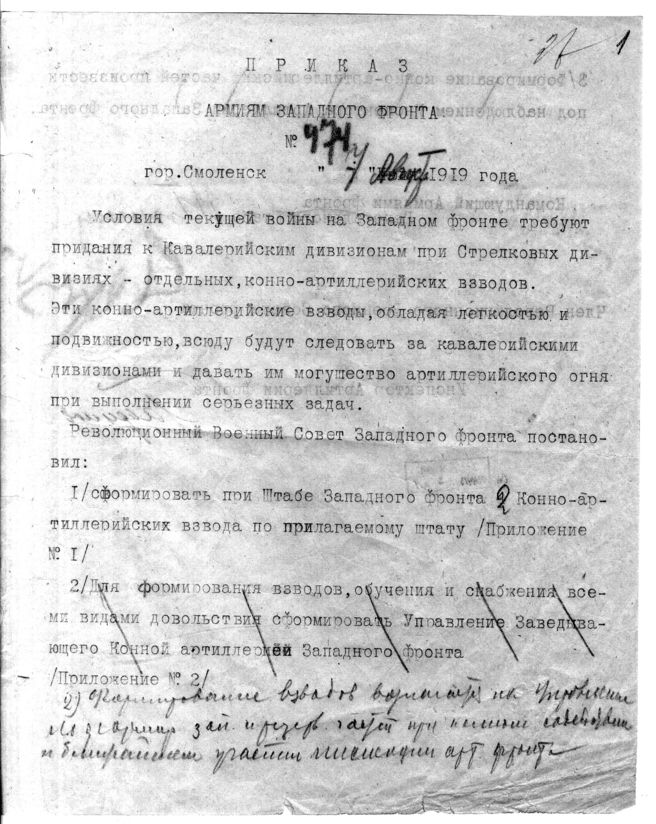 1
ПРИКАЗ
АРМИЯМ ЗАПАДНОГО ФРОНТА
№ 474
гор.Смоленск " 7 " Август 1919 года
Условия текущей войны на Западном фронте требуют
придания к Кавалерийским дивизионам при Стрелковых ди-
визиях - отдельных,конно-артиллерийских взводов.
Эти конно-артиллерийские взводы,обладая легкостью и
подвижностью,всюду будут следовать за кавалерийскими
дивизионами и давать им могущество артиллерийского огня
при выполнении серьезных задач.
Революционный Военный Совет Западного фронта постано-
вил:
I/сформировать при Штабе Западного фронта 2 Конно-ар-
тиллерийских взвода по прилагаемому штату /Приложение
№ I/
2/Для формирования взводов,обучения и снабжения все-
ми видами довольствия сформировать Управление Заведыва-
ющего Конной артиллерией Западного фронта
/Приложение № 2/
2) Формирование взводов возлагается на Управление
зап. при полном содействии
и ближайшем участии инспекции арт. фронта